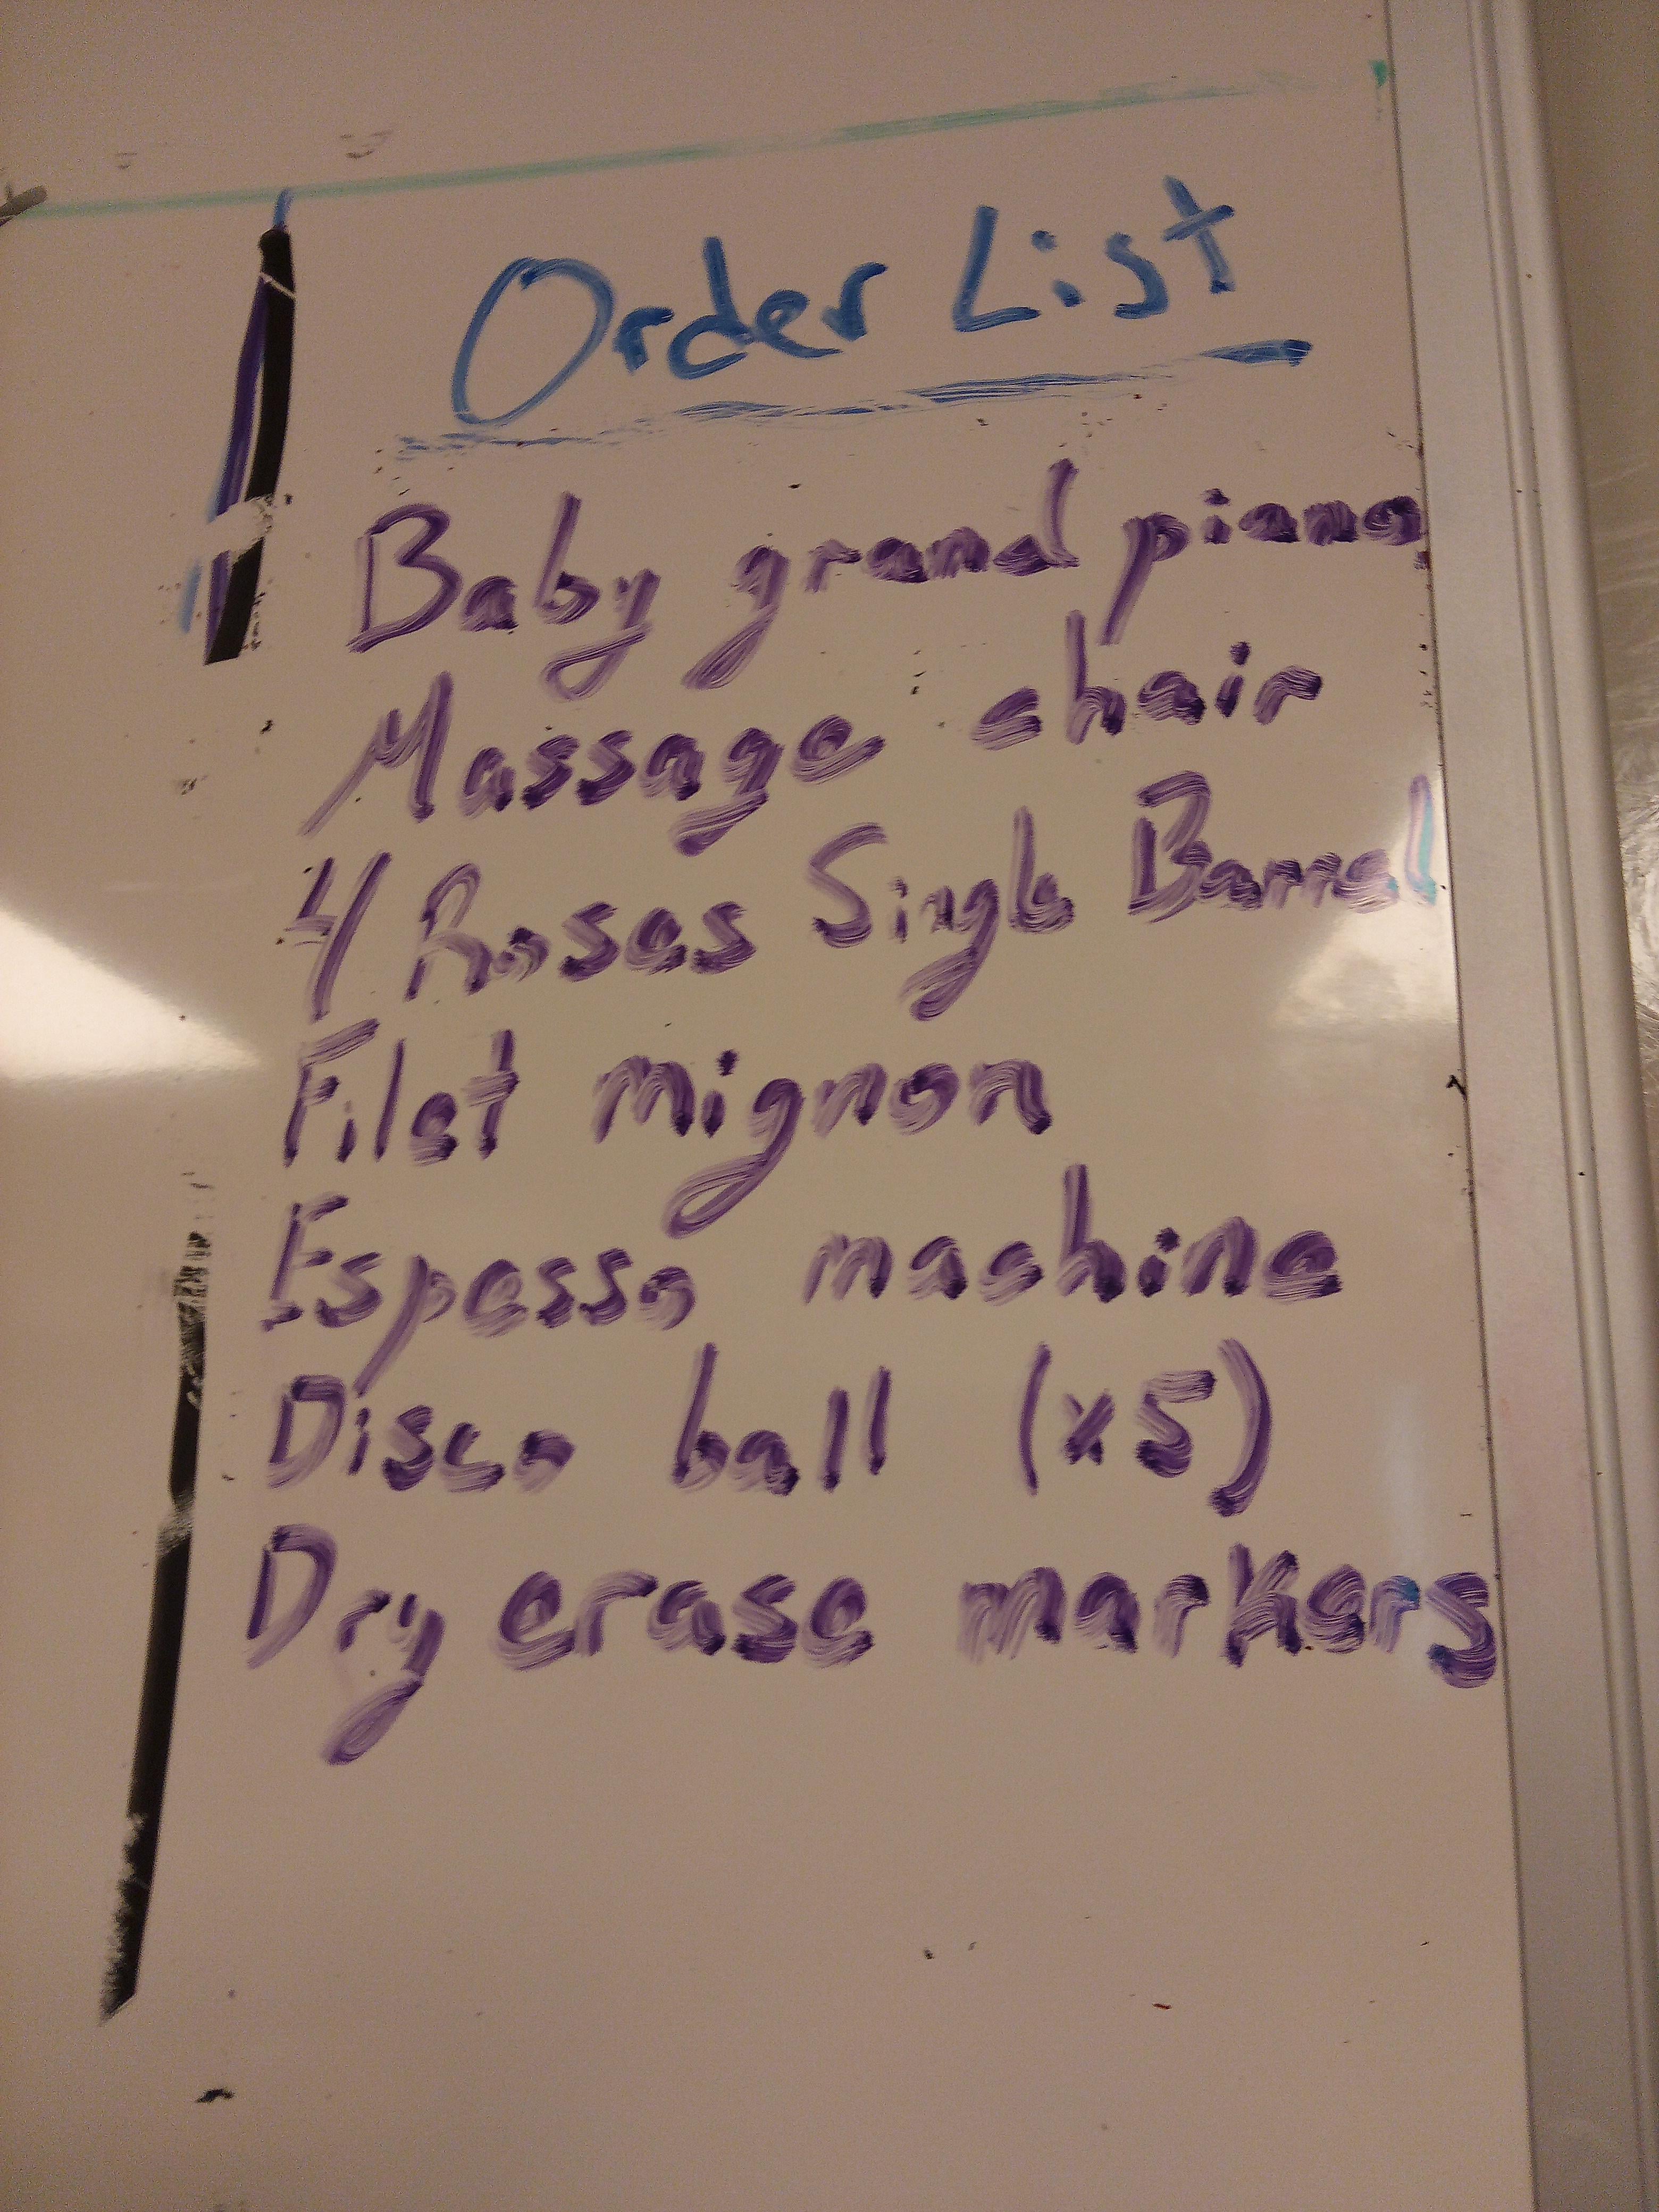 Order List
Baby grand piano
Massage chair
4 Roses Single Barrel
Filet mignon
Espesso machine
Disco ball (x5)
Dry erase markers